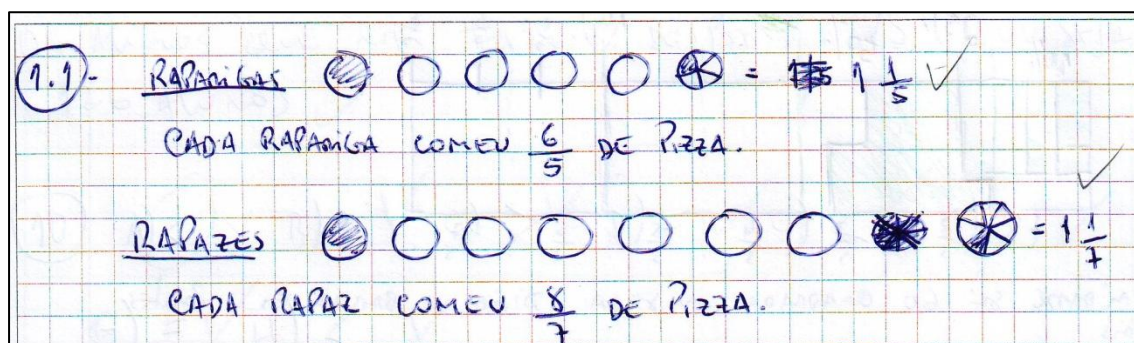 1.1- RAPARIGAS = 1 1/5
CADA RAPARIGA COMEU 6/5 DE PIZZA.
RAPAZES = 1 1/7
CADA RAPAZ COMEU 8/7 DE PIZZA.